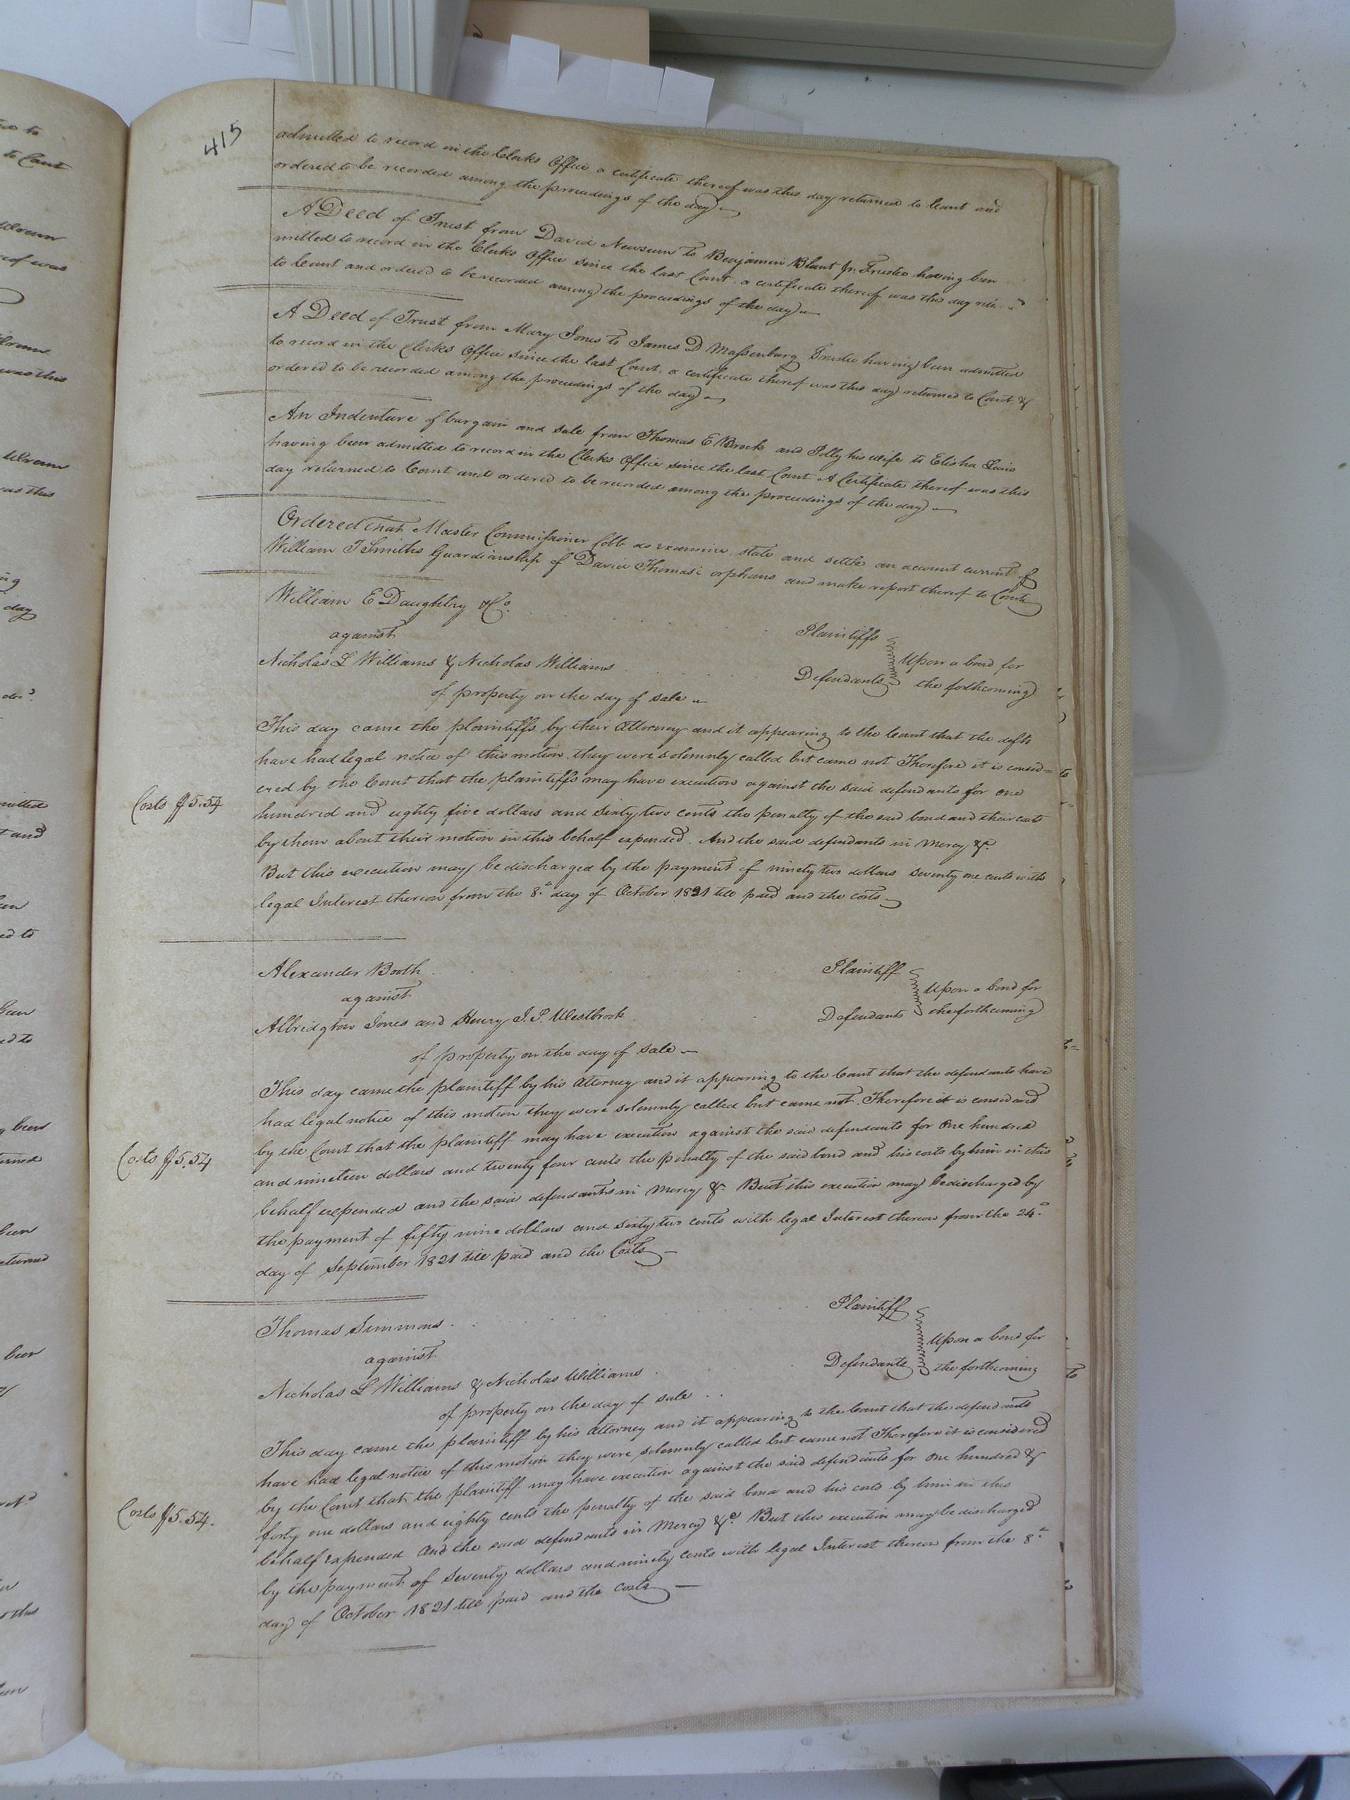 415
admitted to record in the Clerks Office a certificate thereof was this day returned to Court and
ordered to be recorded among the proceedings of the day
A Deed of Trust from David Newsum to Benjamin Blunt Jr. Trustee having been
mitted to record in the Clerks Office since the last Court, a certificate thereof was this day
to Court and ordered to be recorded among the proceedings of the day
A Deed of Trust from Mary Jones to James D Massenburg Trustee having been admitted
to record in the Clerks Office since the last Court, a certificate thereof was this day returned to Court &
ordered to be recorded among the proceedings of the day
An Indenture of bargain and sale from Thomas E Brock and Polly his wife to Elisha Lewis
having been admitted to record in the Clerks Office since the last Court A Certificate thereof was this
day returned to Court and ordered to be recorded among the proceedings of the day
Ordered that Master Commissioner Cobb do examine state and settle an account current of
William T Smiths Guardianship of David Thomas's orphans and make report thereof to Court
William E Daughtry & Co. Plaintiffs
against Upon a bond for
Nicholas L Williams & Nicholas Williams Defendants the forthcoming
of property on the day of sale
This day came the plaintiffs by their Attorney and it appearing to the Court that the defts
have had legal notice of this motion they were solemnly called but came not Therefore it is consid=
ered by the Court that the plaintiffs may have execution against the said defendants for one
Costs $5.54
hundred and eighty five dollars and sixty two cents the penalty of the said bond and their costs
by them about their motion in this behalf expended. And the said defendants in Mercy &c.
But this execution may be discharged by the payment of ninety two dollars seventy one cents with
legal Interest thereon from the 8th day of October 1821 till paid and the costs
Alexander Booth Plaintiff
against Upon a bond for
Albridgton Jones and Henry J. P. Westbrook Defendants the forthcoming
of property on the day of sale
This day came the plaintiff by his Attorney and it appearing to the Court that the defendants have
had legal notice of this motion they were solemnly called but came not. Therefore it is considered
by the Court that the plaintiff may have execution against the said defendants for one hundred
Costs $5.54
and nineteen dollars and twenty four cents the penalty of the said bond and his costs by him in this
behalf expended and the said defendants in Mercy &c. But this execution may be discharged by
the payment of fifty nine dollars and sixty two cents with legal Interest thereon from the 24th
day of September 1821 till paid and the Costs
Thomas Simmons Plaintiff
against Upon a bond for
Nicholas L Williams & Nicholas Williams Defendants the forthcoming
of property on the day of sale
This day came the plaintiff by his Attorney and it appearing to the Court that the defendants
have had legal notice of this motion they were solemnly called but came not Therefore it is considered
by the Court that the plaintiff may have execution against the said defendants for one hundred &
Costs $5.54.
forty one dollars and eighty cents the penalty of the said bond and his costs by him in this
behalf expended And the said defendants in Mercy &c. But this execution may be discharged
by the payment of Seventy dollars and ninety cents with legal Interest thereon from the 8th
day of October 1821 till paid and the costs